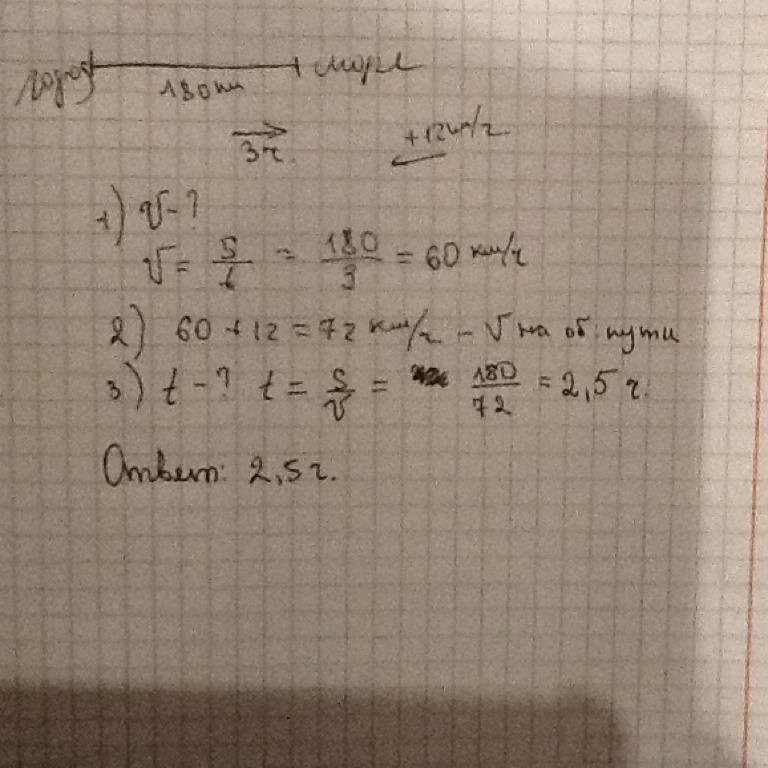 город море
180км
3ч. +12км/ч
1) V-?
V = S/t = 180/3 = 60 км/ч
2) 60 + 12 = 72 км/ч - V на об. пути
3) t - ? t = S/V = 180/72 = 2,5 ч.
Ответ: 2,5 ч.